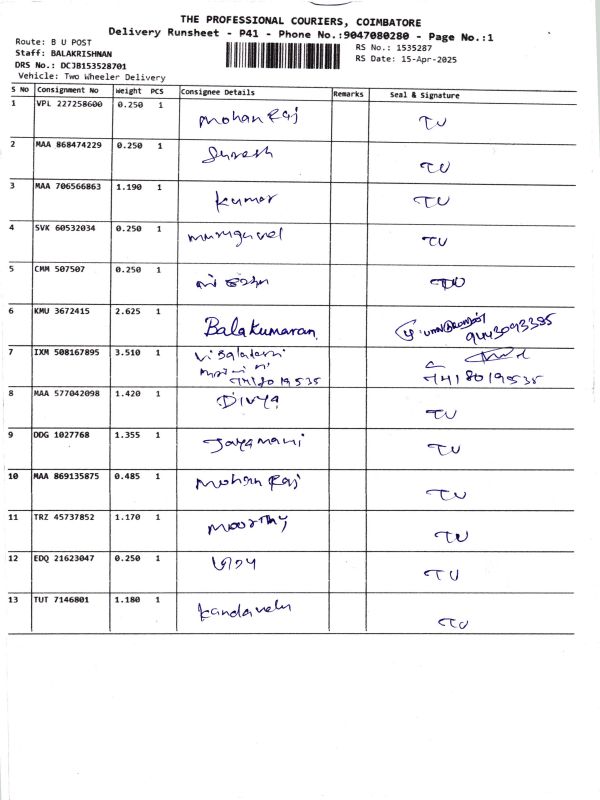 THE PROFESSIONAL COURIERS, COIMBATORE
Delivery Runsheet - P41 - Phone No.:9047080280 - Page No.:1
Route: B U POST
Staff: BALAKRISHNAN
DRS No.: DCJB153528701
Vehicle: Two Wheeler Delivery
RS No.: 1535287
RS Date: 15-Apr-2025
S No Consignment No Weight PCS Consignee Details Remarks Seal & Signature
1 VPL 227258600 0.250 1 Mohan Raj TU
2 MAA 868474229 0.250 1 Suresh TU
3 MAA 706566863 1.190 1 Kumar TU
4 SVK 60532034 0.250 1 Murugavel TU
5 CMM 507507 0.250 1 TU
6 KMU 3672415 2.625 1 Balakumaran 9443093385
7 IXM 508167895 3.510 1
7418019535 7418019535
8 MAA 577042098 1.420 1 Divya TU
9 DDG 1027768 1.355 1 Jayamani TU
10 MAA 869135875 0.485 1 Mohan Raj TU
11 TRZ 45737852 1.170 1 Moorthy TU
12 EDQ 21623047 0.250 1 TU
13 TUT 7146801 1.180 1 Kandavelu TU